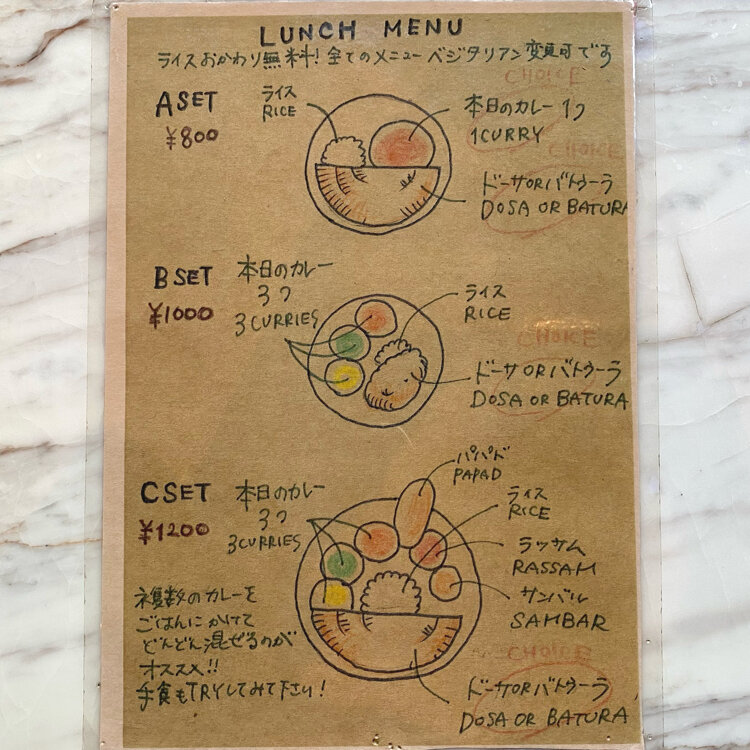 LUNCH MENU
ライスおかわり無料!全てのメニューベジタリアン変更可です
CHOICE
ASET
¥800
ライス
RICE
本日のカレー1つ
1CURRY
CHOICE
ドーサORバトゥーラ
DOSA OR BATURA
BSET
¥1000
本日のカレー
3つ
3CURRIES
ライス
RICE
CHOICE
ドーサORバトゥーラ
DOSA OR BATURA
CSET
¥1200
本日のカレー
3つ
3CURRIES
パパド
PAPAD
ライス
RICE
ラッサム
RASSAM
サンバル
SAMBAR
複数のカレーを
ごはんにかけて
どんどん混ぜるのが
オススメ!!
手食もTRYしてみて下さい!
CHOICE
ドーサORバトゥーラ
DOSA OR BATURA